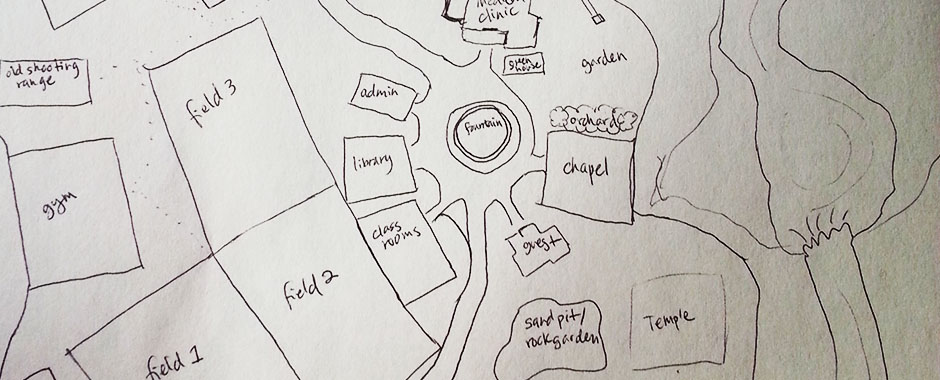 medical
clinic
green
house
garden
old shooting
range
field 3
admin
fountain
orchard
library
chapel
gym
class
rooms
guest
field 2
sandpit/
rockgarden
Temple
field 1